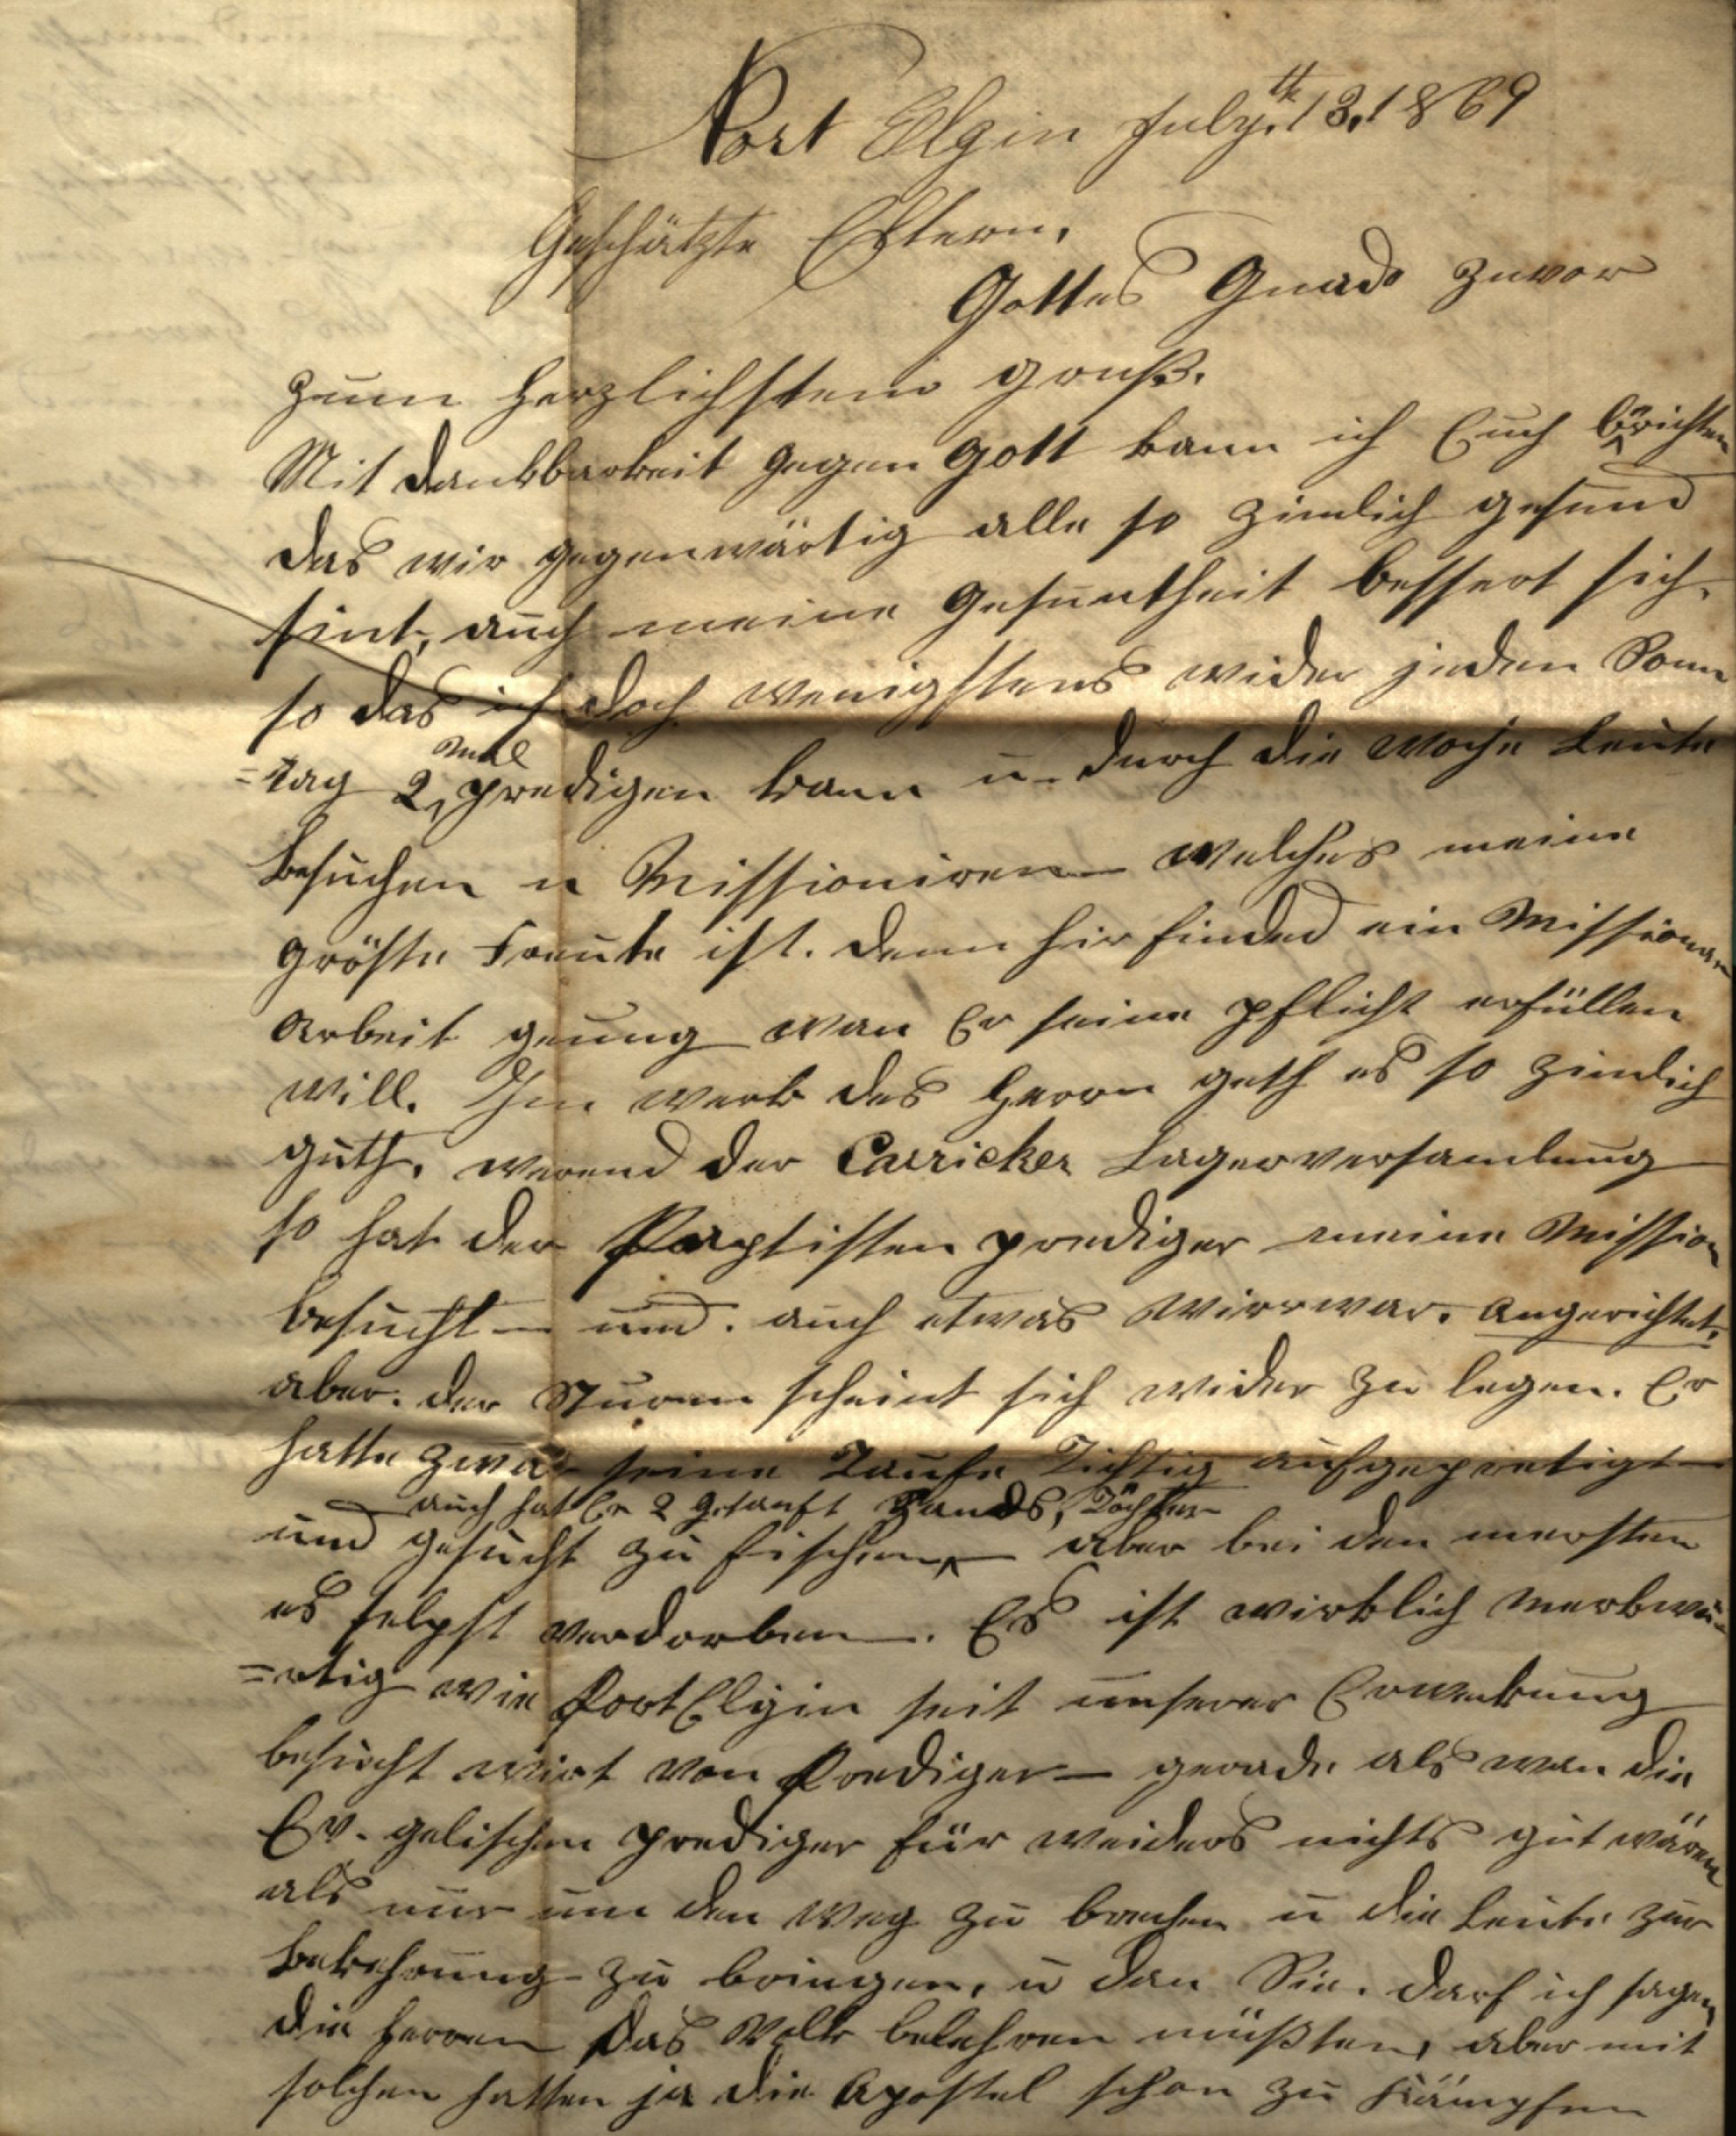 Port Elgin July. 13.th 1869
Geschätzte Eltern,
Gottes Gnade zuvor
zum herzlichstem gruß.
Mit dankbarkeit gegen Gott kann ich Euch berichten
das wir gegenwärtig alle so zimlich gesund
sint, auch meine gesuntheit bessert sich,
so das ich doch wenigstens wider jeden Sonn
=tag 2 Mal predigen kann u. durch die Woche Leute
besuchen u Missioniren welches meine
gröste Freute ist. denn hir finded ein Missionar
Arbeit genung wan Er seine pflicht erfüllen
will. Im werk des Herrn geth es so zimlich
guth. werend der Carricker Lagerversamlung
so hat der Paptisten prediger meine Mission
besucht – und auch etwas Wirrwar. Angerichtet,
aber. der Sturm scheint sich wider zu legen. Er
hatte zwar seine Taufe Tichtig aufgepretigt
auch hat Er 2 getauft Töchter
und gesucht zu fischen – aber bei den mersten
es selpst verdorben. Es ist wirklich merkwü-
=rtig wie Port Elgin seit unserer Erweckung
besucht wirt von Prediger – gerade als wan die
Ev. gelischen prediger für weiders nichts gut wären
als nur um den Weg zu brechen u die Leute zur
Bekehrung zu bringen, u dan Sie. darf ich sagen
die Herren das Volk belehren müßten, aber mit
solchen hatten ja die Apostel schon zu Kämpfen